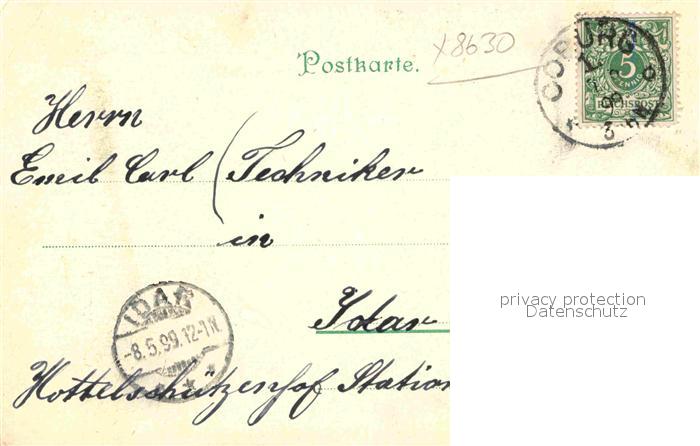 x8630
Postkarte.
COBURG
5
PFENNIG
REICHSPOST
Herrn
Emil Carl (Techniker
in
Idar
IDAR
-8.5.99.12-1N.
Hottelschützenhof Station
privacy protection
Datenschutz